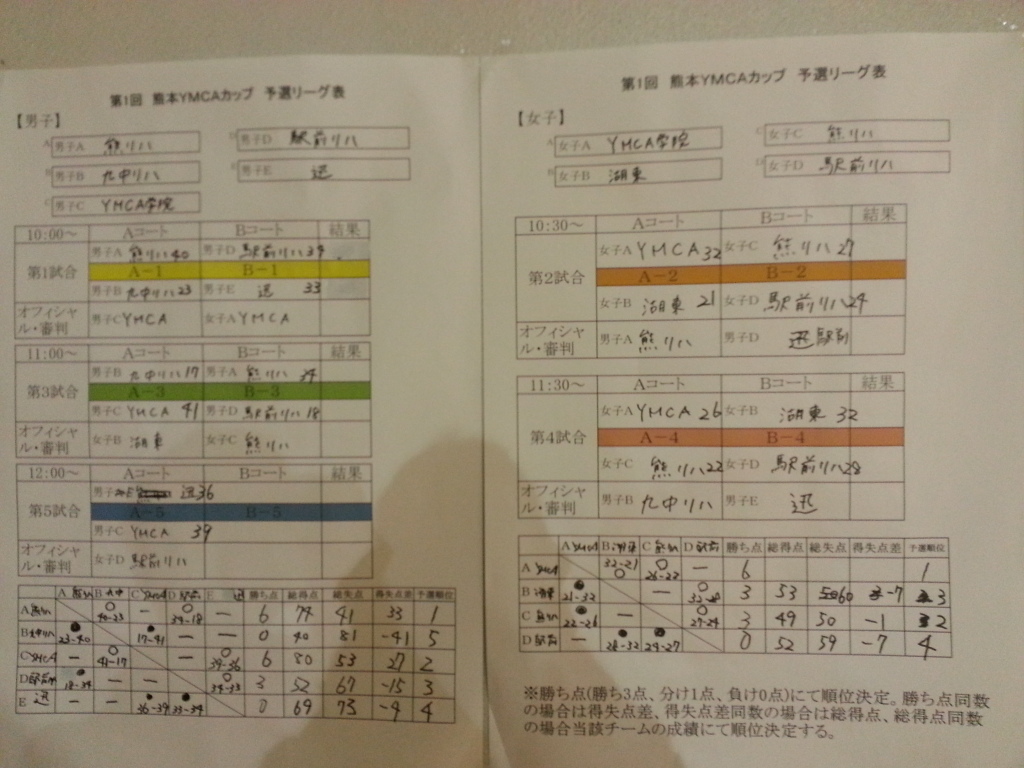 第1回 熊本YMCAカップ 予選リーグ表
【男子】
A 男子A 熊リハ
B 男子B 九中リハ
C 男子C YMCA学院
D 男子D 駅前リハ
E 男子E 迅
10:00～ Aコート Bコート 結果
男子A 熊リハ 40 男子D 駅前リハ 34
第1試合 A-1 B-1
男子B 九中リハ 23 男子E 迅 33
オフィシャル・審判 男子C YMCA 女子A YMCA
11:00～ Aコート Bコート 結果
男子B 九中リハ 17 男子A 熊リハ 34
第3試合 A-3 B-3
男子C YMCA 41 男子D 駅前リハ 18
オフィシャル・審判 女子B 湖東 女子C 熊リハ
12:00～ Aコート Bコート 結果
男子E 迅 36
第5試合 A-5 B-5
男子C YMCA 39
オフィシャル・審判 女子D 駅前リハ
A 熊リハ B 九中 C YMCA D 駅前 E 迅 勝ち点 総得点 総失点 得失点差 予選順位
A 熊リハ 〇 40-23 － 〇 34-18 － 6 74 41 33 1
B 九中リハ ● 23-40 ● 17-41 － － 0 40 81 -41 5
C YMCA － 〇 41-17 － 〇 39-36 6 80 53 27 2
D 駅前リハ ● 18-34 － － 〇 34-33 3 52 67 -15 3
E 迅 － － ● 36-39 ● 33-34 0 69 73 -4 4
第1回 熊本YMCAカップ 予選リーグ表
【女子】
A 女子A YMCA学院
B 女子B 湖東
C 女子C 熊リハ
D 女子D 駅前リハ
10:30～ Aコート Bコート 結果
女子A YMCA 32 女子C 熊リハ 27
第2試合 A-2 B-2
女子B 湖東 21 女子D 駅前リハ 24
オフィシャル・審判 男子A 熊リハ 男子D 迅 駅前
11:30～ Aコート Bコート 結果
女子A YMCA 26 女子B 湖東 32
第4試合 A-4 B-4
女子C 熊リハ 22 女子D 駅前リハ 28
オフィシャル・審判 男子B 九中リハ 男子E 迅
A YMCA B 湖東 C 熊リハ D 駅前 勝ち点 総得点 総失点 得失点差 予選順位
A YMCA 32-21 〇 〇 26-22 － 6 1
B 湖東 ● 21-32 － 〇 32-28 3 53 60 -7 3
C 熊リハ ● 22-26 － 〇 27-24 3 49 50 -1 2
D 駅前 － ● 28-32 ● 24-27 0 52 59 -7 4
※勝ち点(勝ち3点、分け1点、負け0点)にて順位決定。勝ち点同数
の場合は得失点差、得失点差同数の場合は総得点、総得点同数
の場合当該チームの成績にて順位決定する。